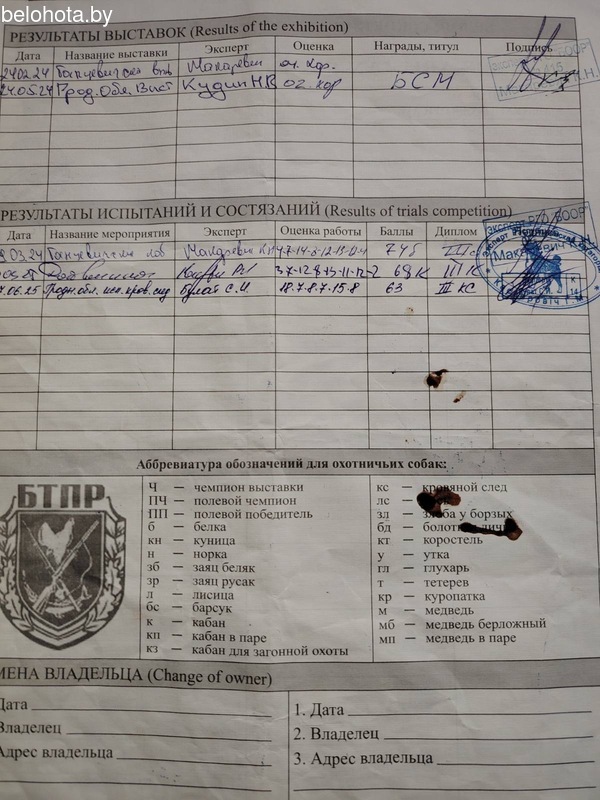 belohota.by
РЕЗУЛЬТАТЫ ВЫСТАВОК (Results of the exhibition)
Дата Название выставки Эксперт Оценка Награды, титул Подпись
24.02.24 Макаревич оч. хор.
24.05.24 Прод. Обл. Выст Кудин НВ оч. хор БСМ
РЕЗУЛЬТАТЫ ИСПЫТАНИЙ И СОСТЯЗАНИЙ (Results of trials competition)
Дата Название мероприятия Эксперт Оценка работы Баллы Диплом Подпись
03.24 Макаревич 74б III
68 К III К
.06.25 Гродн. обл. исп. кров. след Булат С.И. 18.7.8.7.15.8 63 III КС
Аббревиатура обозначений для охотничьих собак:
БТПР
Ч — чемпион выставки
ПЧ — полевой чемпион
ПП — полевой победитель
б — белка
кн — куница
н — норка
зб — заяц беляк
зр — заяц русак
л — лисица
бс — барсук
к — кабан
кп — кабан в паре
кз — кабан для загонной охоты
кс — кровяной след
лс —
зл — злоба у борзых
бд — болотная дичь
кт — коростель
у — утка
гл — глухарь
т — тетерев
кр — куропатка
м — медведь
мб — медведь берложный
мп — медведь в паре
МЕНА ВЛАДЕЛЬЦА (Change of owner)
Дата
Владелец
Адрес владельца
1. Дата
2. Владелец
3. Адрес владельца